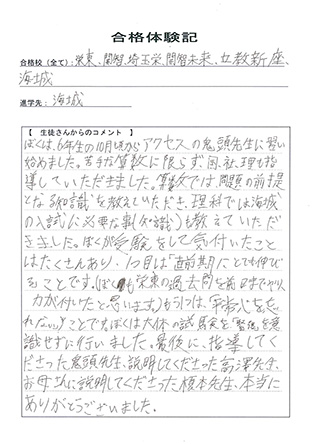 合格体験記
合格校（全て）：栄東、開智、埼玉栄、開智未来、立教新座、
海城
進学先：海城
【 生徒さんからのコメント 】
ぼくは、6年生の10月頃からアクセスの鬼頭先生に習い
始めました。苦手な算数に限らず、国、社、理も指
導していただきました。算数では、問題の前提
となる知識を教えていただき、理科では海城
の入試に必要な事(知識)も教えていただ
きました。ぼくが受験をして気付いたこと
はたくさんあり、1つ目は「直前期にとても伸び
ることです。(ぼくも栄東の過去問を前日までやり、
力が付いたと思います。)もう1つは、「平常心を忘
れない」ことです。ぼくは大体の試験を「緊張」を意
識せずに行いました。最後に、指導してく
ださった鬼頭先生、説明してくださった富澤先生、
お母さんに説明してくださった榎本先生、本当に
ありがとうございました。